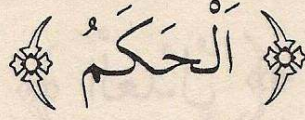 اَلْحَكَمُ